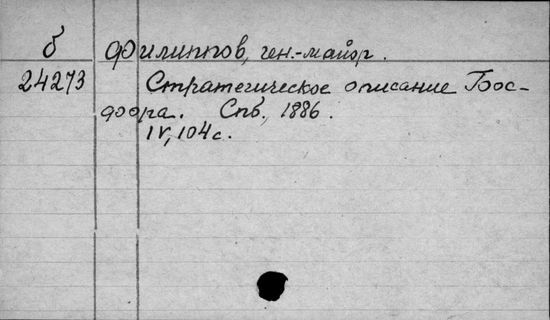 б Филиппов, ген.-майор.
24273 Стратегическое описание Бос-
фора. Спб., 1886.
IV, 104 с.